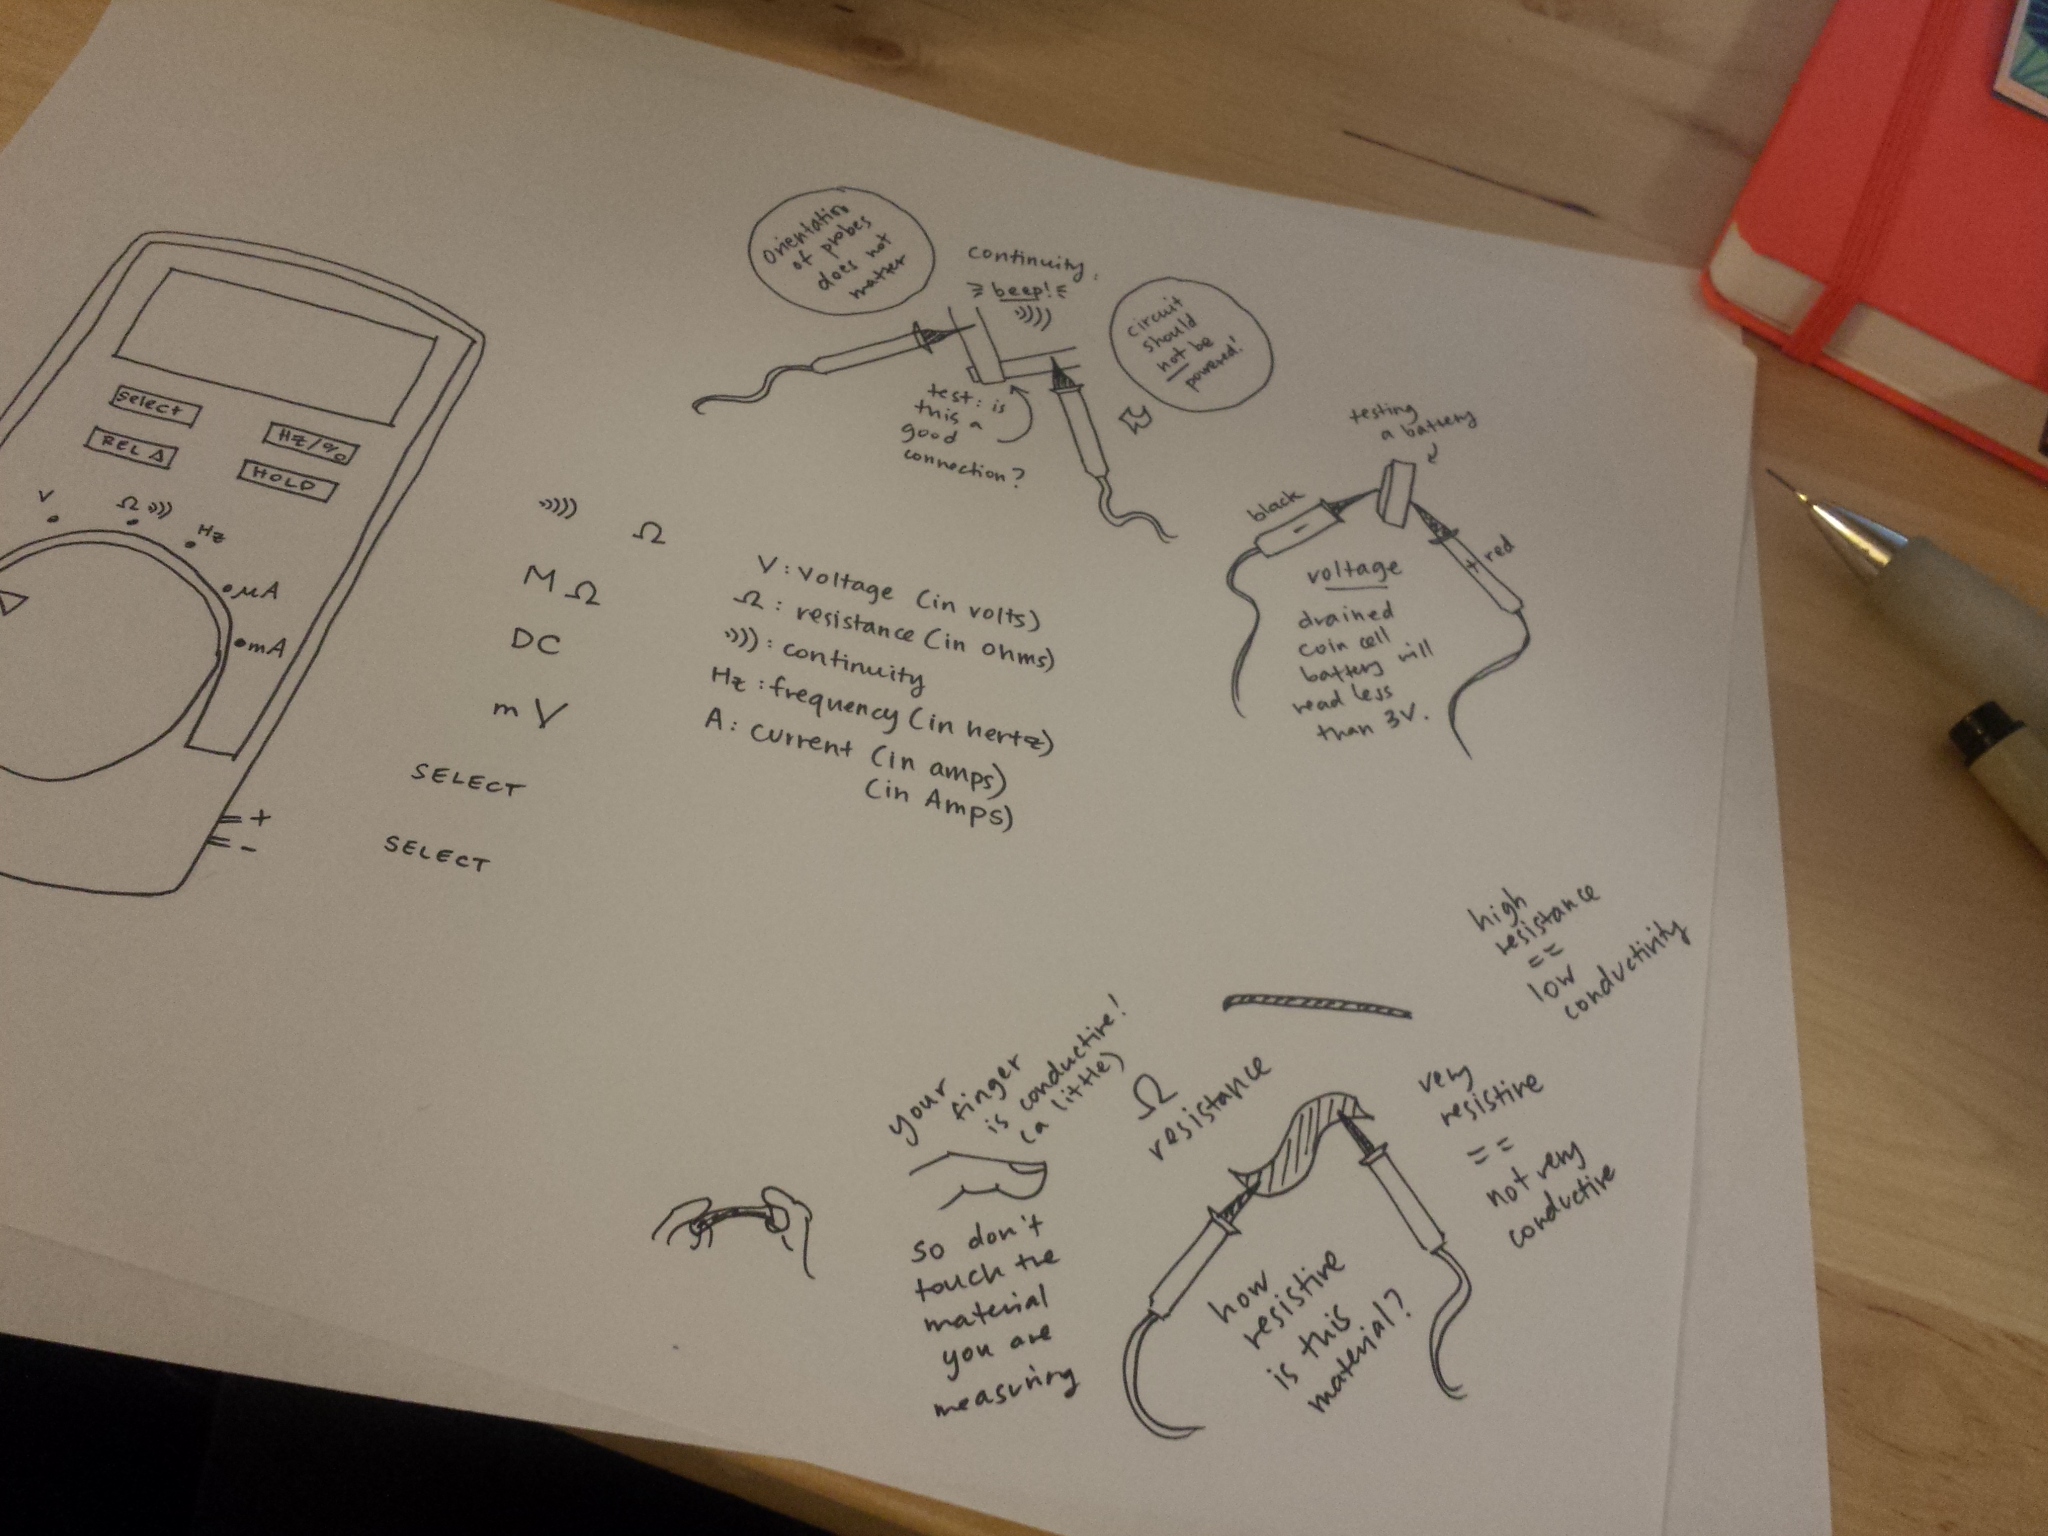 Orientation
of probes
does not
matter
continuity.
beep!
circuit
should
not be
powered!
test: is
this a
good
connection?
select
Hz/%
REL Δ
HOLD
V
Ω
Hz
μA
mA
+
-
Ω
MΩ
DC
mV
SELECT
SELECT
V: voltage (in volts)
Ω: resistance (in ohms)
: continuity
Hz: frequency (in hertz)
A: current (in amps)
(in Amps)
testing
a battery
black
-
+ red
voltage
drained
coin cell
battery will
read less
than 3V.
high
resistance
==
low
conductivity
your
finger
is conductive!
(a little)
so don't
touch the
material
you are
measuring
Ω
resistance
how
resistive
is this
material?
very
resistive
==
not very
conductive